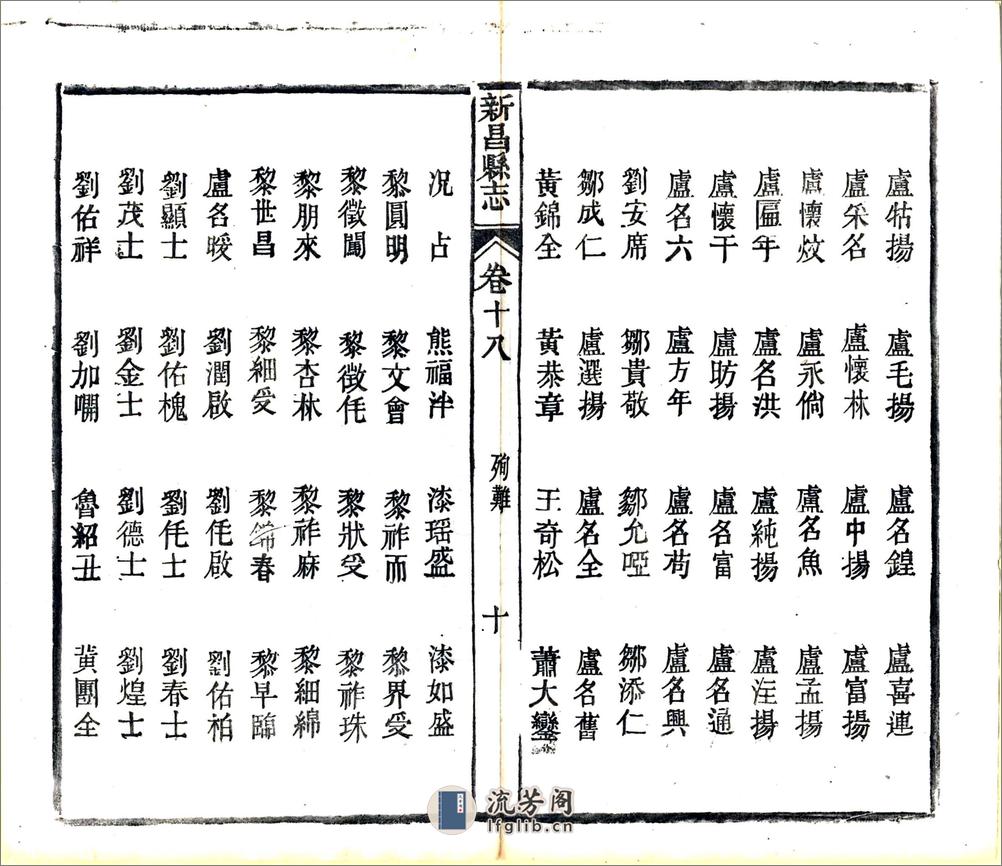 盧牯揚 盧毛揚 盧名鍠 盧喜連
盧采名 盧懷林 盧中揚 盧富揚
盧懷炆 盧永倘 盧名魚 盧孟揚
盧匾年 盧名洪 盧純揚 盧洼揚
盧懷干 盧昉揚 盧名富 盧名通
盧名六 盧方年 盧名苟 盧名興
劉安席 鄒貴敬 鄒允啞 鄒添仁
鄒成仁 盧選揚 盧名全 盧名舊
黃錦全 黃恭章 王奇松 蕭大鑾
新昌縣志 卷十八 殉難 十
况占 熊福泮 漆瑶盛 漆如盛
黎圓明 黎文會 黎祚而 黎界受
黎徵闖 黎徵仛 黎狀受 黎祚珠
黎朋來 黎杏林 黎祚麻 黎細綿
黎世昌 黎細受 黎 春 黎早臨
盧名暖 劉潤啟 劉仛啟 劉佑柏
劉顯士 劉佑槐 劉仛士 劉春士
劉茂士 劉金士 劉德士 劉煌士
劉佑祥 劉加嗍 魯紹丑 黃團全
流芳阁
lfglib.cn